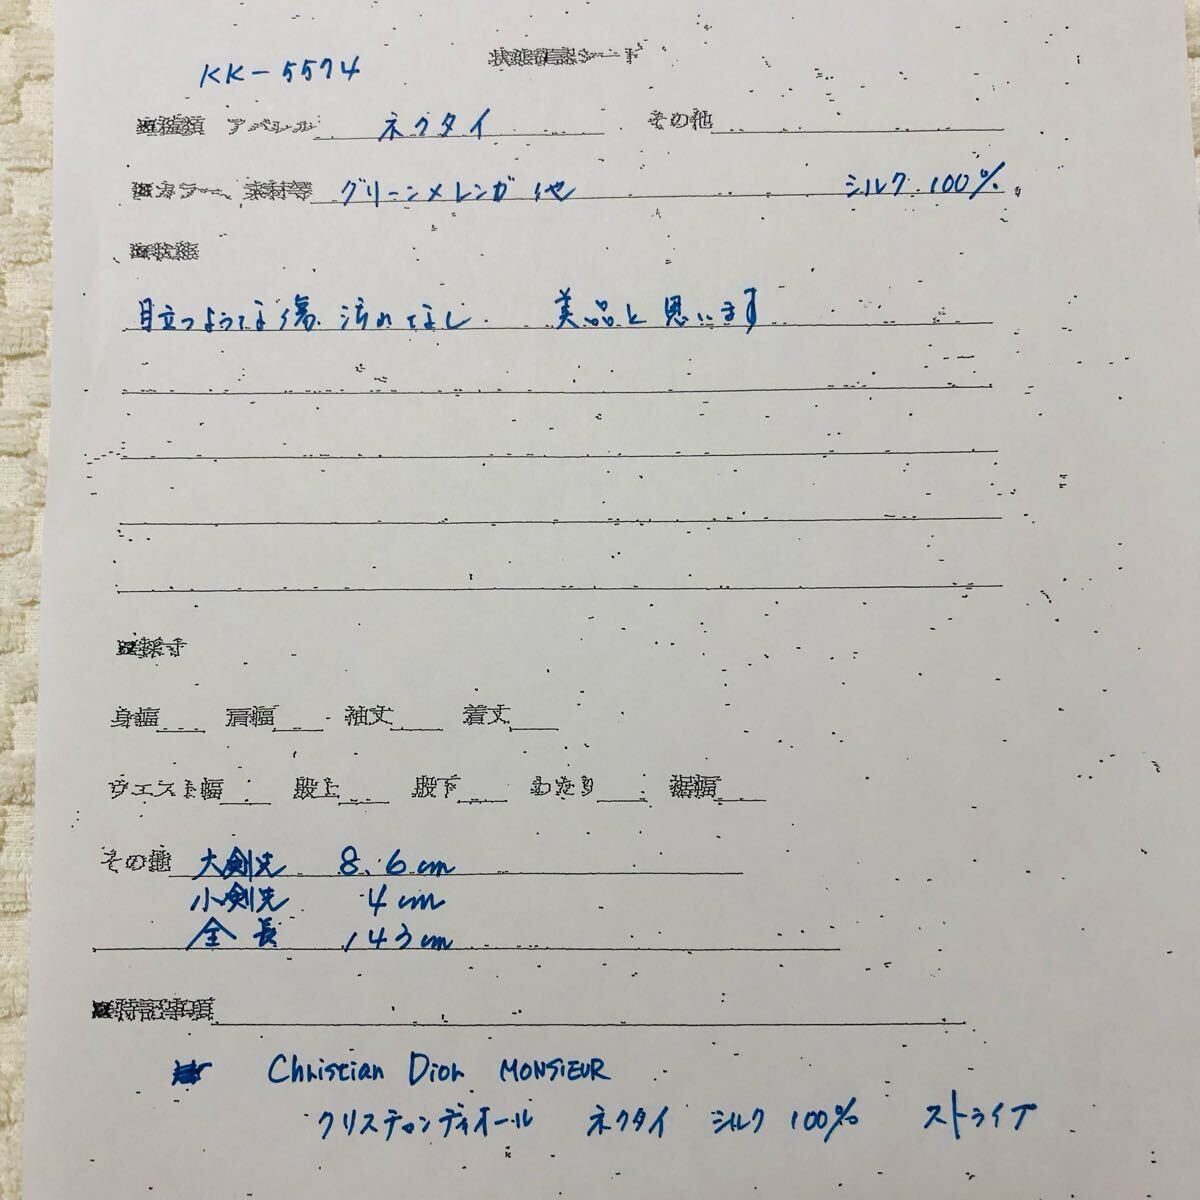 状態確認シート
KK-5574
■種類 アパレル ネクタイ その他
■カラー、素材等 グリーン×レンガ 他 シルク 100%
■状態
目立つような傷、汚れなし 美品と思います
■採寸
身幅 肩幅 袖丈 着丈
ウエスト幅 股上 股下 わたり 裾幅
その他 大剣先 8.6cm
小剣先 4cm
全長 143cm
■特記事項
Christian Dior MONSIEUR
クリスチャンディオール ネクタイ シルク 100% ストライプ